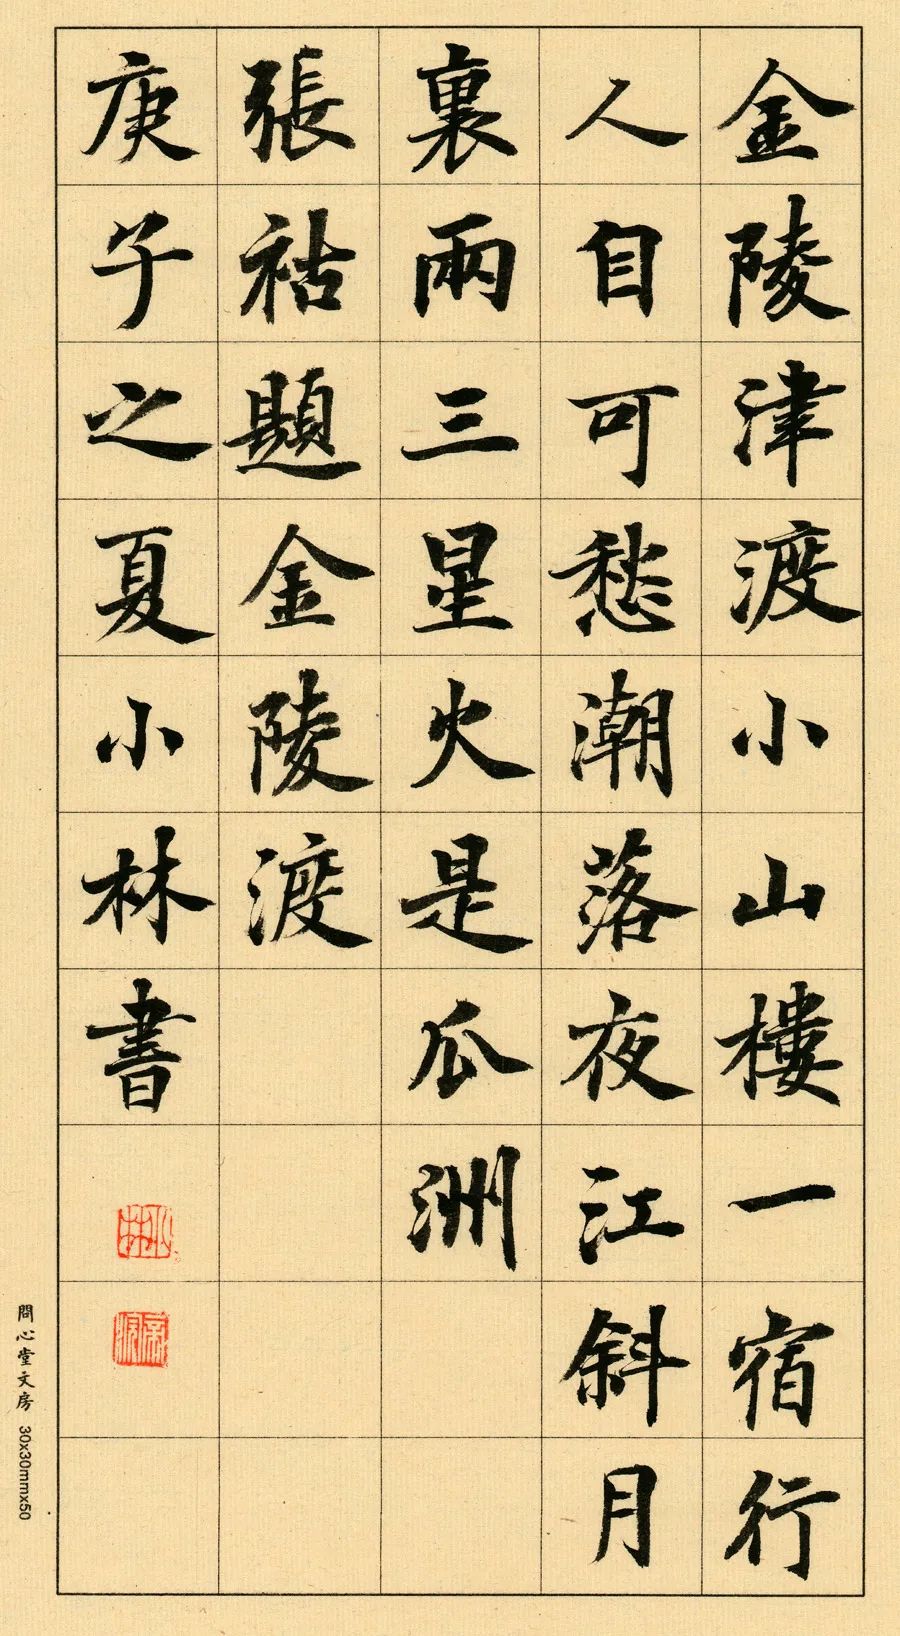 金陵津渡小山樓一宿行
人自可愁潮落夜江斜月
裏兩三星火是瓜洲
張祜題金陵渡
庚子之夏小林書
小林
問心堂文房 30x30mmx50